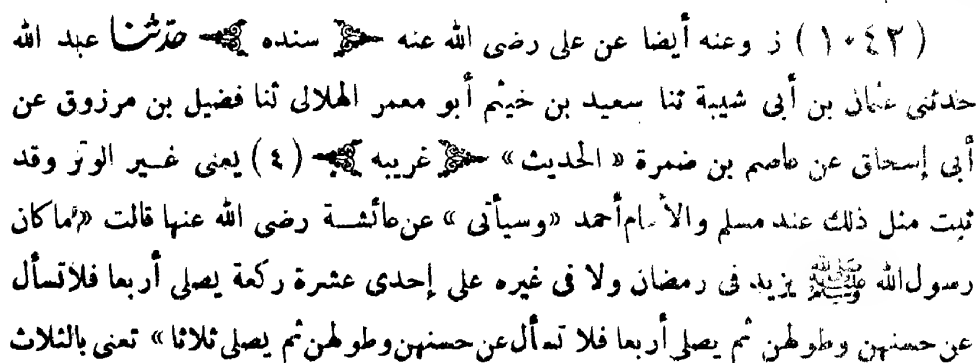 (١٠٤٣) ز وعنه أيضا عن على رضى الله عنه سنده حدثنا عبد الله
حدثنى عثمان بن أبى شيبة ثنا سعيد بن خيثم أبو معمر الهلالى ثنا فضيل بن مرزوق عن
أبى إسحاق عن عاصم بن ضمرة «الحديث» غريبه (٤) يعنى غير الوتر وقد
ثبت مثل ذلك عند مسلم والأمام أحمد «وسيأتى» عن عائشة رضى الله عنها قالت «ما كان
رسول الله ﷺ يزيد فى رمضان ولا فى غيره على إحدى عشرة ركعة يصلى أربعا فلا تسأل
عن حسنهن وطولهن ثم يصلى أربعا فلا تسأل عن حسنهن وطولهن ثم يصلى ثلاثا» تعنى بالثلاث